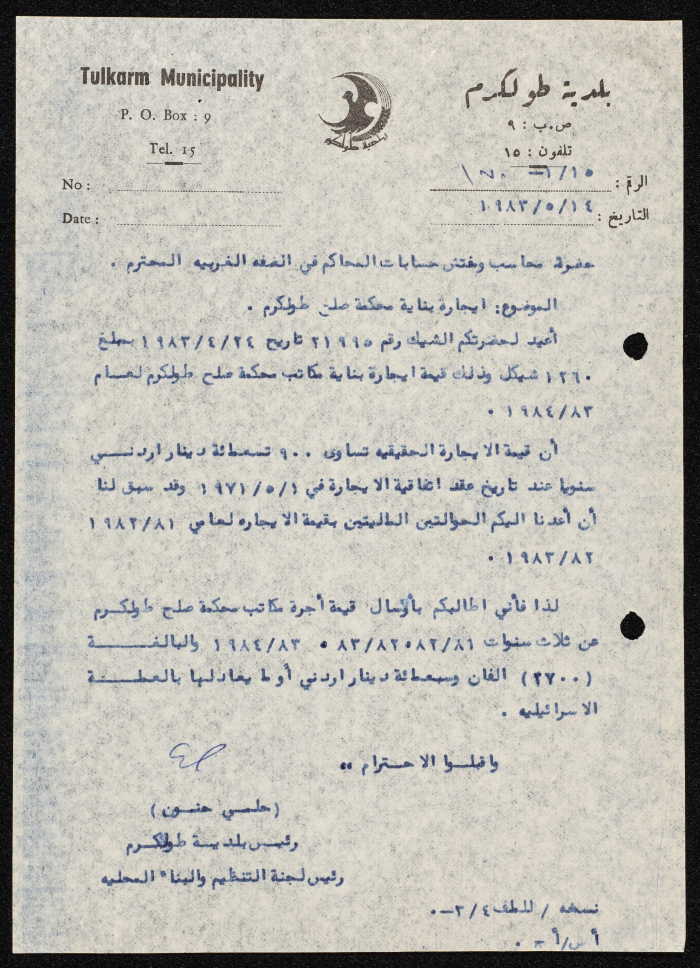 Tulkarm Municipality
P. O. Box : 9
Tel. 15
No :
Date :
بلدية طولكرم
ص.ب : ٩
تلفون : ١٥
الرقم :
التاريخ : ١٩٨٣/٥/١٤
بلدية طولكرم
حضرة محاسب ومفتش حسابات المحاكم في الضفه الغربيه المحترم .
الموضوع: ايجارة بناية محكمة صلح طولكرم .
أعيد لحضرتكم الشيك رقم ٢١٩٩٥ تاريخ ١٩٨٣/٤/٢٤ بمبلغ
١٢٦٠ شيكل وذلك قيمة ايجارة بناية مكاتب محكمة صلح طولكرم لعـام
١٩٨٤/٨٣ .
أن قيمة الايجارة الحقيقيه تساوى ٩٠٠ تسعمائة دينار اردنـــي
سنويا عند تاريخ عقد اتفاقية الايجارة في ١٩٧١/٥/١ وقد سبق لنا
أن أعدنا اليكم الحوالتين الماليتين بقيمة الايجاره لعامي ١٩٨٢/٨١
١٩٨٣/٨٢ .
لذا فأني اطالبكم بأرسال قيمة أجرة مكاتب محكمة صلح طولكـرم
عن ثلاث سنوات ٨٢/٨١ ٨٣/٨٢ ١٩٨٤/٨٣ والبالغـــــة
(٢٧٠٠) الفان وسبعمائة دينار اردني أو ما يعادلها بالعملـــة
الاسرائيليه .
واقبلـوا الاحـترام ،،
(حلمـي حنـون)
رئيـس بلديـة طولكـرم
رئيس لجنة التنظيم والبناء المحليه
نسخه / للملف ٣/٤ـ.